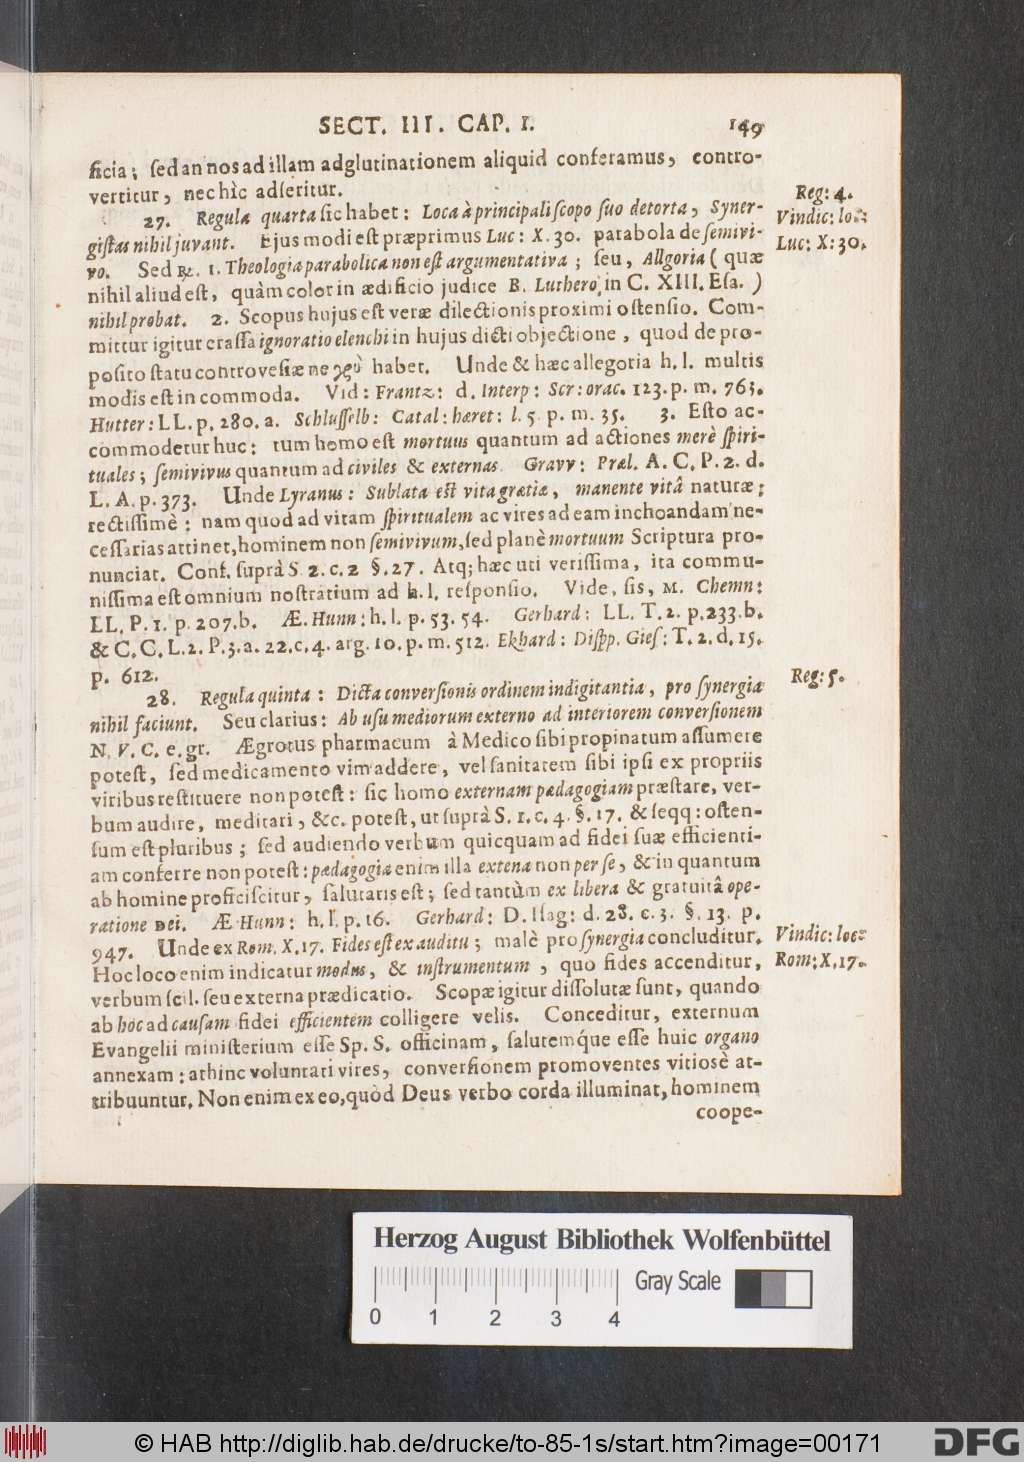 SECT. III. CAP. I. 149
ficia; sed an nos ad illam adglutinationem aliquid conferamus, contro-
vertitur, nec hìc adseritur.
27. Regula quarta sic habet: Loca à principali scopo suo detorta, Syner-
gistas nihil juvant. Ejusmodi est præprimus Luc: X. 30. parabola de semivi-
vo. Sed ℞. 1. Theologia parabolica non est argumentativa; seu, Allgoria (quæ
nihil aliud est, quàm color in ædificio judice B. Luthero, in C. XIII. Esa.)
nihil probat. 2. Scopus hujus est veræ dilectionis proximi ostensio. Com-
mittur igitur crassa ignoratio elenchi in hujus dicti objectione, quod de pro-
posito statu controvesiæ ne γρὺ habet. Unde & hæc allegoria h. l. multis
modis est in commoda. Vid: Frantz: d. Interp: Scr: orac. 123. p. m. 763.
Hutter: LL. p. 280. a. Schlusselb: Catal: hæret: l. 5. p. m. 35. 3. Esto ac-
commodetur huc: tum homo est mortuus quantum ad actiones merè spiri-
tuales; semivivus quantum ad civiles & externas. Gravv: Præl. A. C. P. 2. d.
L. A. p. 373. Unde Lyranus: Sublata est vita gratiæ, manente vitâ naturæ;
rectissimè: nam quod ad vitam spiritualem ac vires ad eam inchoandam ne-
cessarias attinet, hominem non semivivum, sed planè mortuum Scriptura pro-
nunciat. Conf. suprà S. 2. c. 2 §. 27. Atq; hæc uti verissima, ita commu-
nissima est omnium nostratium ad h. l. responsio. Vide, sis, M. Chemn:
LL. P. 1. p. 207. b. Æ. Hunn: h. l. p. 53. 54. Gerhard: LL. T. 2. p. 233. b.
& C. C. L. 2. P. 3. a. 22. c. 4. arg. 10. p. m. 512. Ekhard: Dispp. Gies: T. 2. d. 15.
p. 612.
28. Regula quinta: Dicta conversionis ordinem indigitantia, pro synergia
nihil faciunt. Seu clarius: Ab usu mediorum externo ad interiorem conversionem
N. V. C. e. gr. Ægrotus pharmacum à Medico sibi propinatum assumere
potest, sed medicamento vim addere, vel sanitatem sibi ipsi ex propriis
viribus restituere non potest: sic homo externam pædagogiam præstare, ver-
bum audire, meditari, &c. potest, ut suprà S. 1. c. 4. §. 17. & seqq: osten-
sum est pluribus; sed audiendo verbum quicquam ad fidei suæ efficienti-
am conferre non potest: pædagogia enim illa extena non per se, & in quantum
ab homine proficiscitur, salutaris est; sed tantùm ex libera & gratuitâ ope-
ratione DEI. Æ Hunn: h. l. p. 16. Gerhard: D. Isag: d. 28. c. 3. §. 13. p.
947. Unde ex Rom. X. 17. Fides est ex auditu; malè pro synergia concluditur.
Hoc loco enim indicatur modus, & instrumentum, quo fides accenditur,
verbum scil. seu externa prædicatio. Scopæ igitur dissolutæ sunt, quando
ab hoc ad causam fidei efficientem colligere velis. Conceditur, externum
Evangelii ministerium esse Sp. S. officinam, salutemq́ue esse huic organo
annexam: at hinc voluntati vires, conversionem promoventes vitiosè at-
tribuuntur. Non enim ex eo, quòd Deus verbo corda illuminat, hominem
coope-
Reg: 4.
Vindic: loc:
Luc: X: 30.
Reg: 5.
Vindic: loc:
Rom: X. 17.
Herzog August Bibliothek Wolfenbüttel
Gray Scale
0 1 2 3 4
© HAB http://diglib.hab.de/drucke/to-85-1s/start.htm?image=00171
DFG